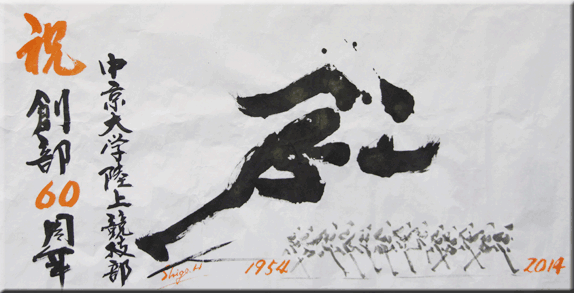 祝
創部
60
周年
中京大学陸上競技部
Shigo.H
1954
2014